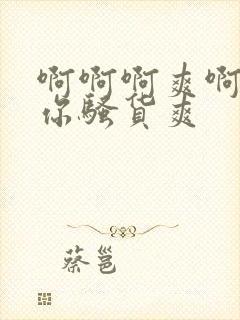 啊啊啊爽啊
你骚货爽
蔡邕